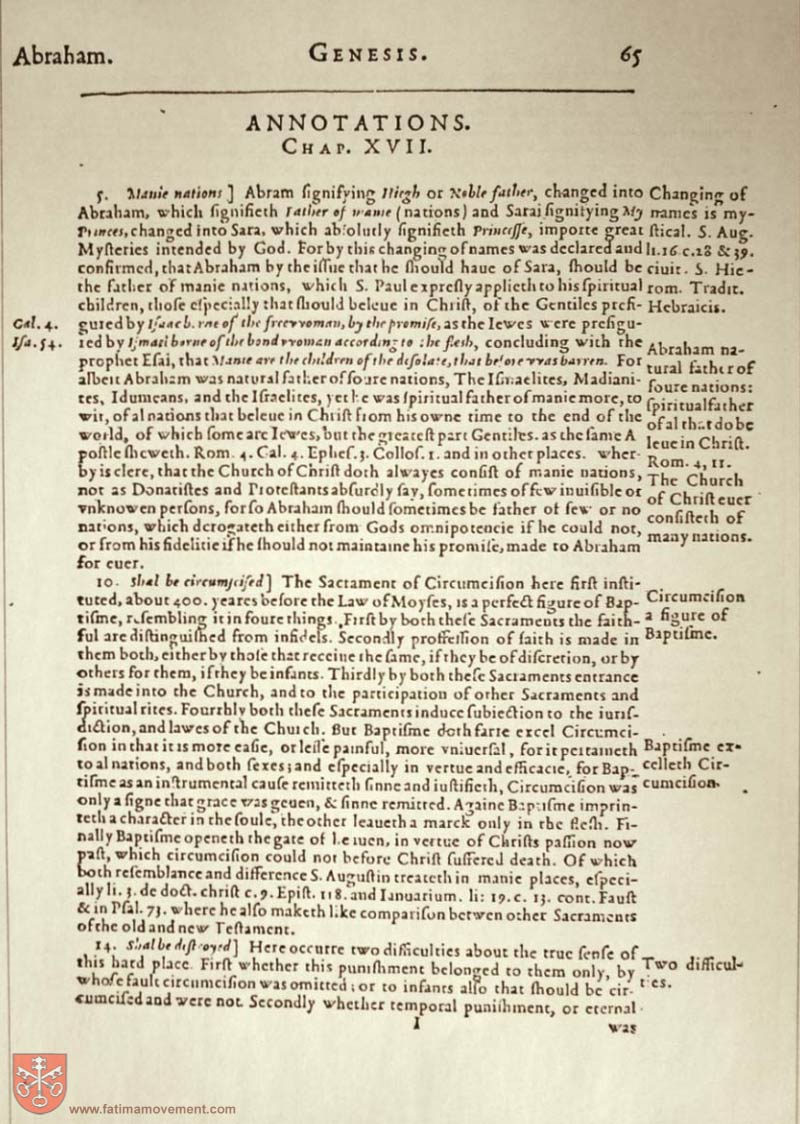 Abraham. GENESIS. 65
ANNOTATIONS.
CHAP. XVII.
5. Manie nations] Abram ſignifying Hiegh or Noble father, changed into
Abraham, which ſignifieth Father of manie (nations) and Sarai ſignifying My
Princes, changed into Sara, which abſolutly ſignifieth Princeſſe, importe great
Myſteries intended by God. For by this changing of names was declared and
confirmed, that Abraham by the iſſue that he ſhould haue of Sara, ſhould be
the father of manie nations, which S. Paul expreſly applieth to his ſpiritual
children, thoſe eſpecially that ſhould beleue in Chriſt, of the Gentiles prefi-
gured by Iſaac borne of the free vvoman, by the promiſe, as the Iewes were prefigu-
red by Iſmael borne of the bond vvoman according to the fleſh, concluding with the
prophet Eſai, that Manie are the children of the deſolate, that before vvas barren. For
albeit Abraham was natural father of foure nations, The Iſmaelites, Madiani-
tes, Idumeans, and the Iſraelites, yet he was ſpiritual father of manie more, to
wit, of al nations that beleue in Chriſt from his owne time to the end of the
world, of which ſome are Iewes, but the greateſt part Gentiles. as the ſame A
poſtle ſheweth. Rom. 4. Gal. 4. Epheſ. 3. Colloſ. 1. and in other places. wher-
by is clere, that the Church of Chriſt doth alwayes conſiſt of manie nations,
not as Donatiſtes and Proteſtants abſurdly ſay, ſometimes of few inuiſible or
vnknowen perſons, for ſo Abraham ſhould ſometimes be father of few or no
nations, which derogateth either from Gods omnipotencie if he could not,
or from his fidelitie if he ſhould not maintaine his promiſe, made to Abraham
for euer.
10. Shal be circumciſed] The Sacrament of Circumciſion here firſt inſti-
tuted, about 400. yeares before the Law of Moyſes, is a perfect figure of Bap-
tiſme, reſembling it in foure things. Firſt by both theſe Sacraments the faith-
ful are diſtinguiſhed from infidels. Secondly profeſſion of faith is made in
them both, either by thoſe that receiue the ſame, if they be of diſcretion, or by
others for them, if they be infants. Thirdly by both theſe Sacraments entrance
is made into the Church, and to the participation of other Sacraments and
ſpiritual rites. Fourthly both theſe Sacraments induce ſubiection to the iuriſ-
diction, and lawes of the Church. But Baptiſme doth farre excel Circumci-
ſion in that it is more eaſie, or leſſe painful, more vniuerſal, for it pertaineth
to al nations, and both ſexes; and eſpecially in vertue and efficacie, for Bap-
tiſme as an inſtrumental cauſe remitteth ſinne and iuſtifieth, Circumciſion was
only a ſigne that grace was geuen, & ſinne remitted. Againe Baptiſme imprin-
teth a character in the ſoule, the other leaueth a marck only in the fleſh. Fi-
nally Baptiſme openeth the gate of heauen, in vertue of Chriſts paſſion now
paſt, which circumciſion could not before Chriſt ſuffered death. Of which
both reſemblance and difference S. Auguſtin treateth in manie places, eſpeci-
ally li. 3. de doct. chriſt c. 9. Epiſt. 118. and Ianuarium. li: 19. c. 13. cont. Fauſt
& in Pſal. 73. where he alſo maketh like compariſon betwen other Sacraments
of the old and new Teſtament.
14. Shal be deſtroyed] Here occurre two difficulties about the true ſenſe of
this hard place. Firſt whether this puniſhment belonged to them only, by
whoſe fault circumciſion was omitted; or to infants alſo that ſhould be cir-
cumciſed and were not. Secondly whether temporal puniſhment, or eternal
I was
Gal. 4.
Iſa. 54.
Changing of
names is my-
ſtical. S. Aug.
li. 16 c. 28 & 39.
ciuit. S. Hie-
rom. Tradit.
Hebraicis.
Abraham na-
tural father of
foure nations:
ſpiritual father
of al that do be
leue in Chriſt.
Rom. 4, 11.
The Church
of Chriſt euer
conſiſteth of
many nations.
Circumciſion
a figure of
Baptiſme.
Baptiſme ex-
celleth Cir-
cumciſion.
Two difficul-
ties.
www.fatimamovement.com